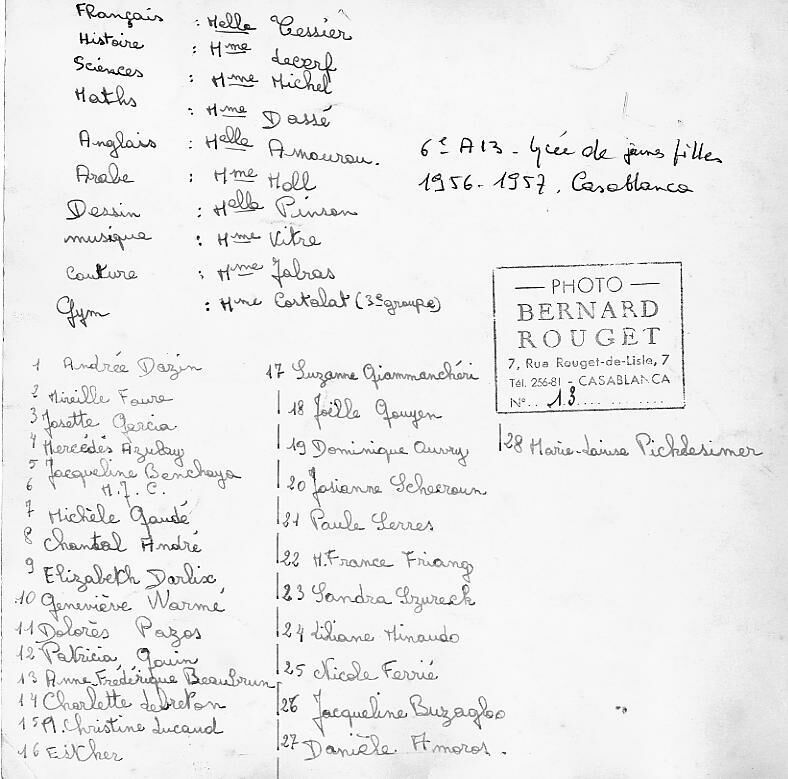 Français : Melle Tessier
Histoire : Mme decerf
Sciences : Mme Michel
Maths : Mme Dossé
Anglais : Melle Amourou.
Arabe : Mme Moll
Dessin : Melle Pinson
musique : Mme Vitre
Couture : Mme Jabras
Gym : Mme Cortalat (3e groupe)
6e A13 - lycée de jeunes filles
1956-1957, Casablanca
— PHOTO —
BERNARD
ROUGET
7, Rue Rouget-de-Lisle, 7
Tél. 256-81 - CASABLANCA
N° 13
1 Andrée Dazin
2 Mireille Faure
3 Josette Garcia
4 Mercédès Azulay
5 Jacqueline Benchaya
6 M.J.C.
7 Michèle Gaudé
8 Chantal André
9 Elizabeth Darlix
10 Geneviève Warmé
11 Dolorès Pazos
12 Patricia Gouin
13 Anne Frédérique Beaubrun
14 Charlette debreton
15 M. Christine Lucaud
16 Esther
17 Suzanne Giammanchéri
18 Joëlle Gouyen
19 Dominique Auvry
20 Josianne Schecroun
21 Paule Serres
22 M. France Friang
23 Sandra Szureck
24 Liliane Minaudo
25 Nicole Ferrié
26 Jacqueline Buzagloo
27 Danièle Amoros.
28 Marie-Louise Pichdesimer